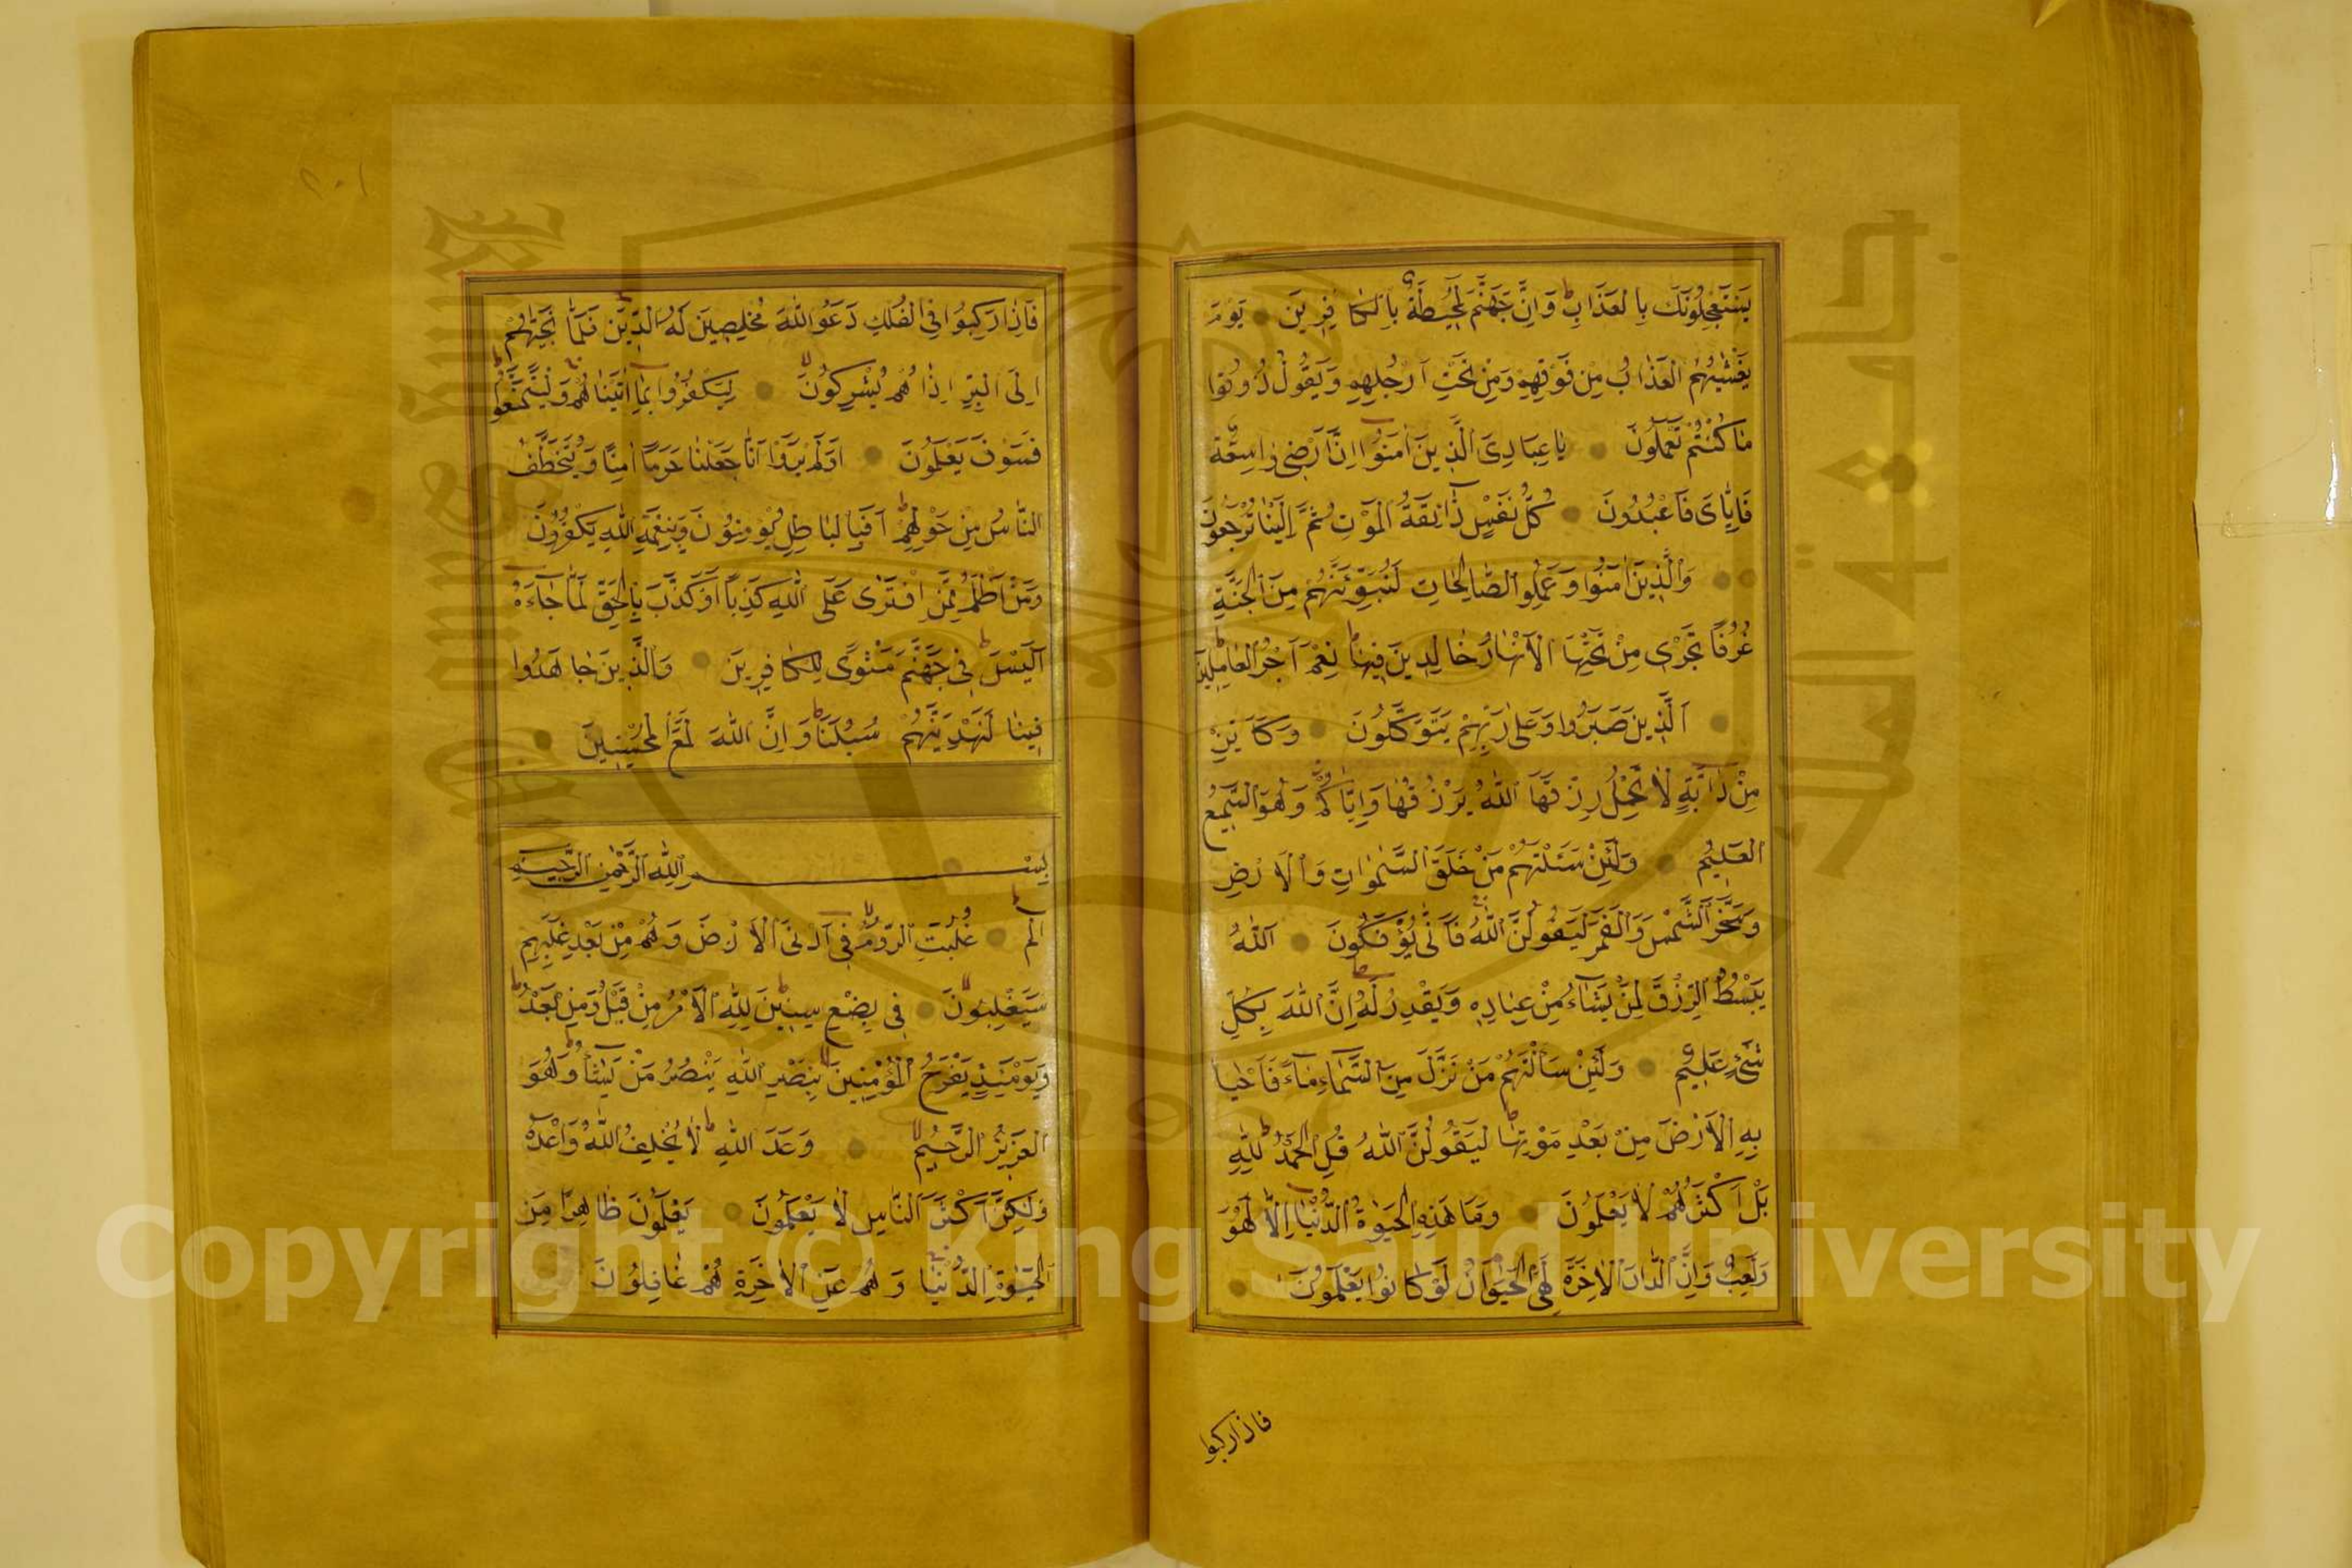 يَسْتَعْجِلُونَكَ بِالْعَذَابِ وَاِنَّ جَهَنَّمَ لَمُحِيطَةٌ بِالْكَافِرِينَ يَوْمَ
يَغْشٰيهُمُ الْعَذَابُ مِنْ فَوْقِهِمْ وَمِنْ تَحْتِ اَرْجُلِهِمْ وَيَقُولُ ذُوقُوا
مَا كُنْتُمْ تَعْمَلُونَ يَا عِبَادِيَ الَّذِينَ اٰمَنُوا اِنَّ اَرْضِى وَاسِعَةٌ
فَاِيَّاىَ فَاعْبُدُونَ كُلُّ نَفْسٍ ذَائِقَةُ الْمَوْتِ ثُمَّ اِلَيْنَا تُرْجَعُونَ
وَالَّذِينَ اٰمَنُوا وَعَمِلُوا الصَّالِحَاتِ لَنُبَوِّئَنَّهُمْ مِنَ الْجَنَّةِ
غُرَفًا تَجْرِى مِنْ تَحْتِهَا الْاَنْهَارُ خَالِدِينَ فِيهَا نِعْمَ اَجْرُ الْعَامِلِينَ
اَلَّذِينَ صَبَرُوا وَعَلٰى رَبِّهِمْ يَتَوَكَّلُونَ وَكَاَيِّنْ
مِنْ دَابَّةٍ لَا تَحْمِلُ رِزْقَهَا اَللّٰهُ يَرْزُقُهَا وَاِيَّاكُمْ وَهُوَ السَّمِيعُ
الْعَلِيمُ وَلَئِنْ سَئَلْتَهُمْ مَنْ خَلَقَ السَّمٰوَاتِ وَالْاَرْضَ
وَسَخَّرَ الشَّمْسَ وَالْقَمَرَ لَيَقُولُنَّ اللّٰهُ فَاَنّٰى يُؤْفَكُونَ اَللّٰهُ
يَبْسُطُ الرِّزْقَ لِمَنْ يَشَاءُ مِنْ عِبَادِهِ وَيَقْدِرُ لَهُ اِنَّ اللّٰهَ بِكُلِّ
شَىْءٍ عَلِيمٌ وَلَئِنْ سَاَلْتَهُمْ مَنْ نَزَّلَ مِنَ السَّمَاءِ مَاءً فَاَحْيَا
بِهِ الْاَرْضَ مِنْ بَعْدِ مَوْتِهَا لَيَقُولُنَّ اللّٰهُ قُلِ الْحَمْدُ لِلّٰهِ
بَلْ اَكْثَرُهُمْ لَا يَعْقِلُونَ وَمَا هٰذِهِ الْحَيٰوةُ الدُّنْيَا اِلَّا لَهْوٌ
وَلَعِبٌ وَاِنَّ الدَّارَ الْاٰخِرَةَ لَهِىَ الْحَيَوَانُ لَوْ كَانُوا يَعْلَمُونَ
فاذا ركبوا
٢٠١
فَاِذَا رَكِبُوا فِى الْفُلْكِ دَعَوُا اللّٰهَ مُخْلِصِينَ لَهُ الدِّينَ فَلَمَّا نَجّٰيهُمْ
اِلَى الْبَرِّ اِذَا هُمْ يُشْرِكُونَ لِيَكْفُرُوا بِمَا اٰتَيْنَاهُمْ وَلِيَتَمَتَّعُوا
فَسَوْفَ يَعْلَمُونَ اَوَلَمْ يَرَوْا اَنَّا جَعَلْنَا حَرَمًا اٰمِنًا وَيُتَخَطَّفُ
النَّاسُ مِنْ حَوْلِهِمْ اَفَبِالْبَاطِلِ يُؤْمِنُونَ وَبِنِعْمَةِ اللّٰهِ يَكْفُرُونَ
وَمَنْ اَظْلَمُ مِمَّنِ افْتَرٰى عَلَى اللّٰهِ كَذِبًا اَوْ كَذَّبَ بِالْحَقِّ لَمَّا جَاءَهُ
اَلَيْسَ فِى جَهَنَّمَ مَثْوًى لِلْكَافِرِينَ وَالَّذِينَ جَاهَدُوا
فِينَا لَنَهْدِيَنَّهُمْ سُبُلَنَا وَاِنَّ اللّٰهَ لَمَعَ الْمُحْسِنِينَ
بِسْمِ اللّٰهِ الرَّحْمٰنِ الرَّحِيمِ
الم غُلِبَتِ الرُّومُ فِى اَدْنَى الْاَرْضِ وَهُمْ مِنْ بَعْدِ غَلَبِهِمْ
سَيَغْلِبُونَ فِى بِضْعِ سِنِينَ لِلّٰهِ الْاَمْرُ مِنْ قَبْلُ وَمِنْ بَعْدُ
وَيَوْمَئِذٍ يَفْرَحُ الْمُؤْمِنِينَ بِنَصْرِ اللّٰهِ يَنْصُرُ مَنْ يَشَاءُ وَهُوَ
الْعَزِيزُ الرَّحِيمُ وَعْدَ اللّٰهِ لَا يُخْلِفُ اللّٰهُ وَعْدَهُ
وَلٰكِنَّ اَكْثَرَ النَّاسِ لَا يَعْلَمُونَ يَعْلَمُونَ ظَاهِرًا مِنَ
الْحَيٰوةِ الدُّنْيَا وَهُمْ عَنِ الْاٰخِرَةِ هُمْ غَافِلُونَ
Copyright © King Saud University